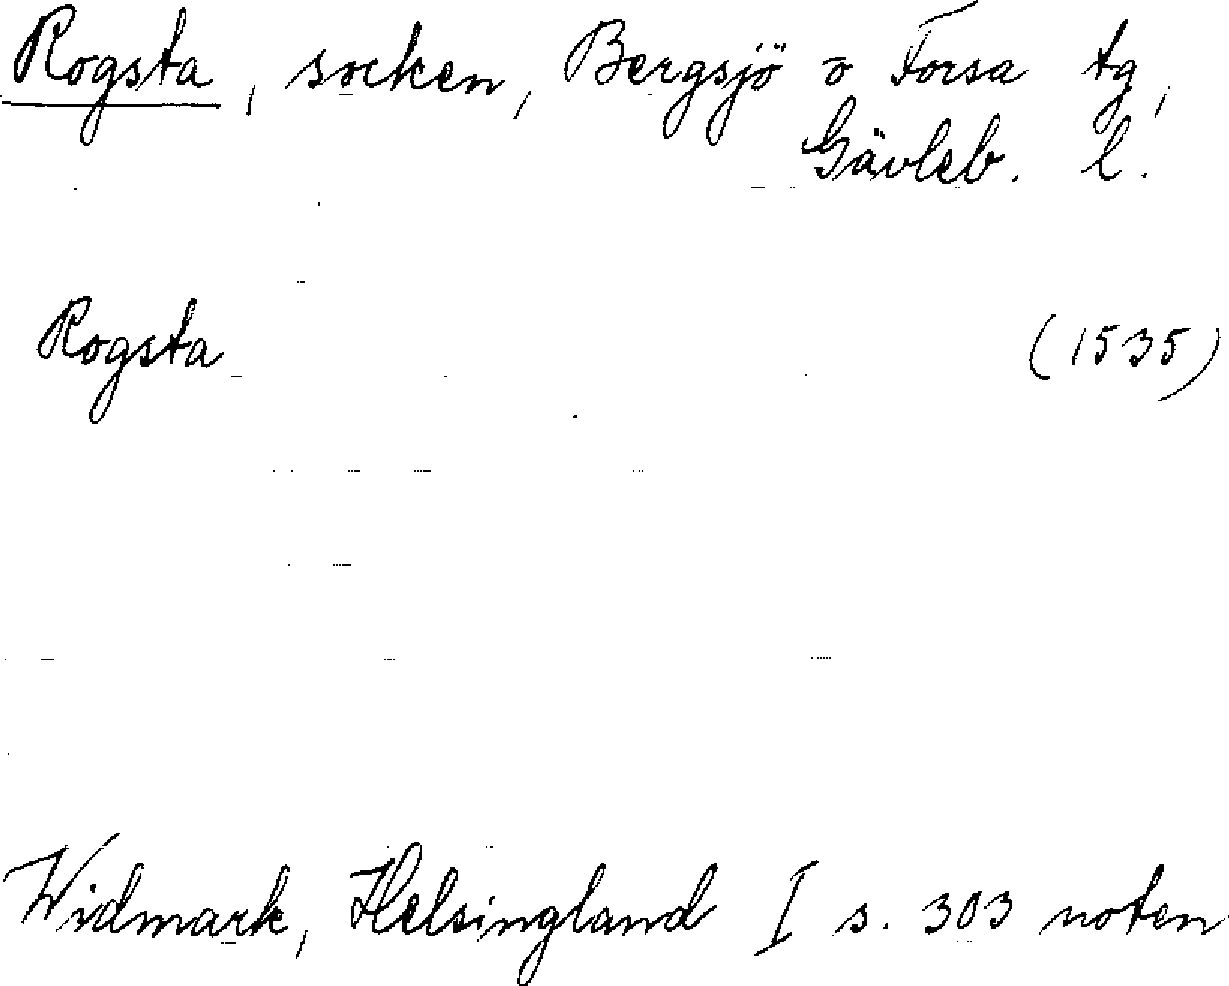 Rogsta, socken, Bergsjö o Forsa tg,
Gävleb. l.
Rogsta (1535)
Widmark, Helsingland I s. 303 noten